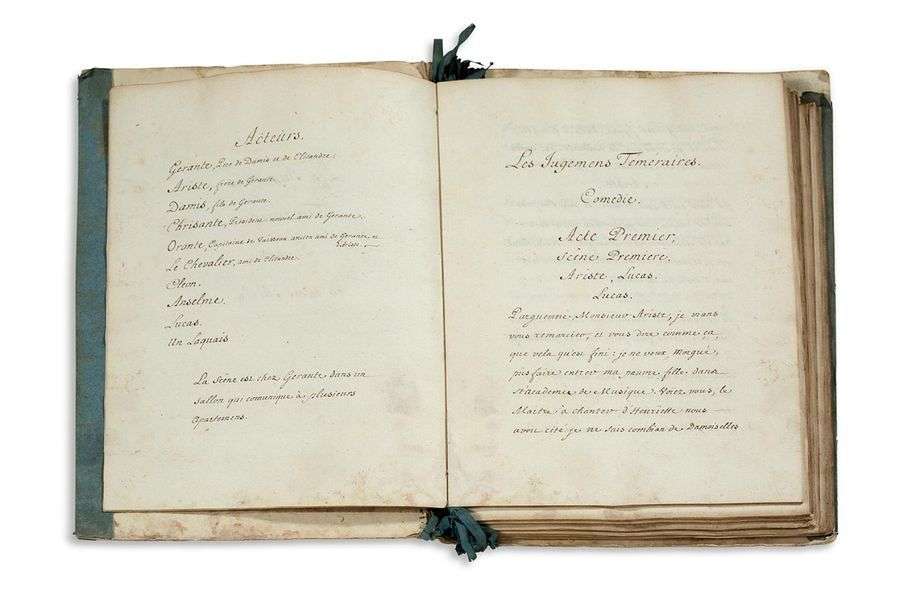 Acteurs.
Gerante, Pere de Damis et de Clitandre.
Ariste, frere de Gerante.
Damis, fils de Gerante.
Chrisante, President nouvel ami de Gerante.
Orante, Capitaine de Vaisseau ancien ami de Gerante et
Le Chevalier, ami de Clitandre.
Cleon.
Anselme.
Lucas.
un Laquais
La Scêne est chez Gerante dans un
sallon qui comunique à plusieurs
apartemens.
Les Jugemens Temeraires.
Comedie.
Acte Premier,
Scêne Premiere.
Ariste, Lucas.
Lucas.
Parguenne, Monsieur Ariste, je vians
vous remarcier, et vous dire comme ça
que vela qu'est fini: je ne veux morgué
pus faire entrer ma pauvre fille dans
st'academie de Musique. Voiez vous, le
Maitre à chanter d'Henriette nous
avoit cité je ne sais combian de Damoiselles